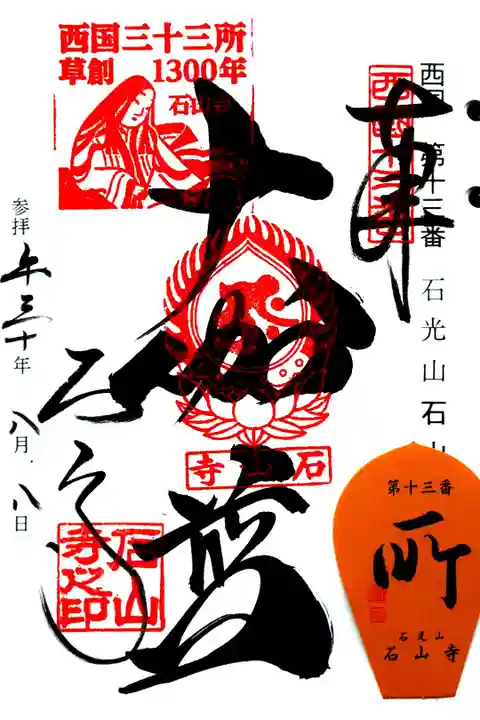 西国三十三所
草創 1300年
石山寺
西国 第十三番 石光山 石山
奉
西国十三番
大伽藍
石山寺
石山寺
石山寺之印
参拝 平三十年 八月八日
第十三番
所
石光山
石山寺